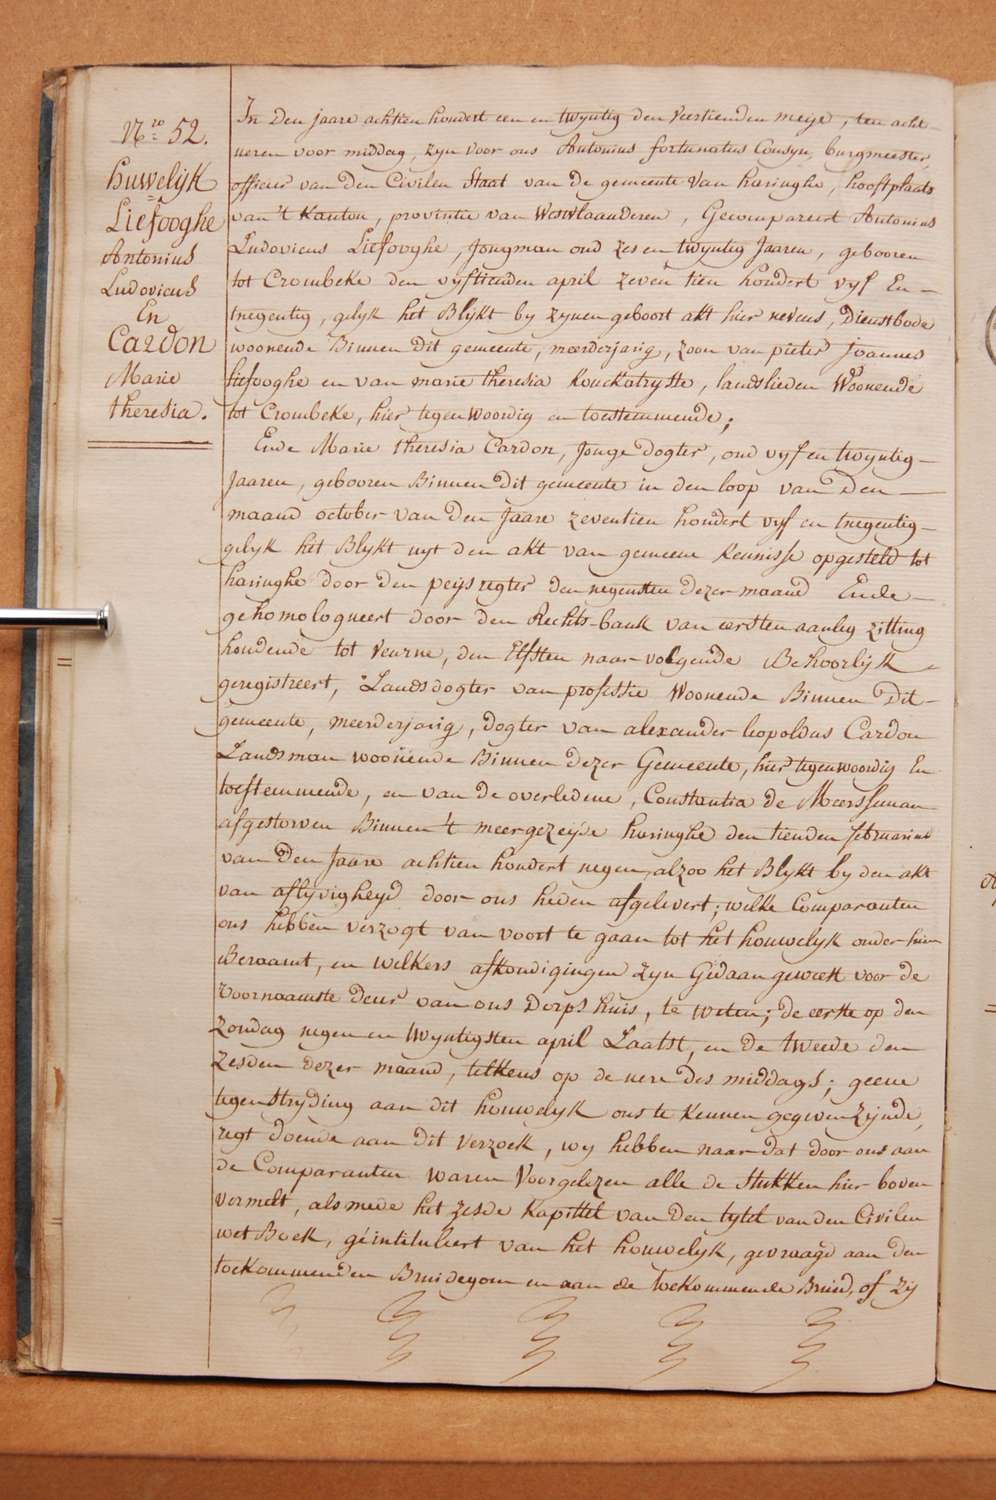 N.ro 52.
Huwelijk
Liefooghe
Antonius
Ludovicus
En
Cardon
Marie
theresia.
In den jaare achtien hondert een en twyntig den veertienden meye, ten acht
ueren voor middag, zyn voor ons Antonius fortunatus Cousyn, burgmeester,
officier van den Civilen Staat van de gemeente van haringhe, hooftplaats
van 't Kanton, provintie van Westvlaanderen, Gecompareert Antonius
Ludovicus Liefooghe, Jongman oud zes en twyntig Jaaren, gebooren
tot Crombeke den vyftienden april zeven tien hondert vyf En
tnegentig, gelyk het Blykt by zynen geboort akt hier nevens, Dienstbode
woonende Binnen dit gemeente, meerderjarig, zoon van pieter Joannes
liefooghe en van marie theresia Kouckatrysse, landslieden Woonende
tot Crombeke, hier tegenwoordig en toestemmende;
Ende Marie theresia Cardon, Jonge dogter, oud vyf en twyntig
Jaaren, gebooren Binnen dit gemeente in den loop van Den
maand october van den Jaare zeventien hondert vyf en tnegentig
gelyk het Blykt uyt den akt van gemeene Kennisse opgesteld tot
haringhe door den peijsregter den negensten dezer maand Ende
gehomologueert door den Rechts-bank van eersten aanleg zitting
houdende tot veurne, den Elfsten naar volgende Behoorlijk
geregistreert, Landsdogter van professie Woonende Binnen Dit
gemeente, meerderjarig, dogter van alexander leopoldus Cardon
Landsman woonende Binnen dezer Gemeente, hier tegenwoordig En
toestemmende, en van de overledene, Constantia de Meerssman
afgestorven Binnen 't meergezeyde haringhe den tienden februarius
van den Jaare achtien hondert negen, alzoo het Blykt by den akt
van aflyvigheyd door ons heden afgelevert; welke Comparanten
ons hebben verzogt van voort te gaan tot het houwelyk onder hun
Beraamt, en welkers afkondigingen zyn Gedaan geweest voor de
Voornaamste deur van ons Dorpshuis, te weten; de eerste op den
zondag negen en twyntigsten april Laatst, en de tweede den
zesden dezer maand, telkens op de uere des middags; geene
tegenstryding aan dit houwelyk ons te Kennen gegeven zynde,
regt doende aan dit verzoek, wy hebben naar dat door ons aan
de Comparanten waren Voorgelezen alle de stukken hier boven
vermelt, als mede het zesde Kapittel van den tytel van den Civilen
wet Boek, géintituleert van het houwelyk, gevraagd aan den
toekommenden Bruidegom en aan de toekommende Bruid, of zij